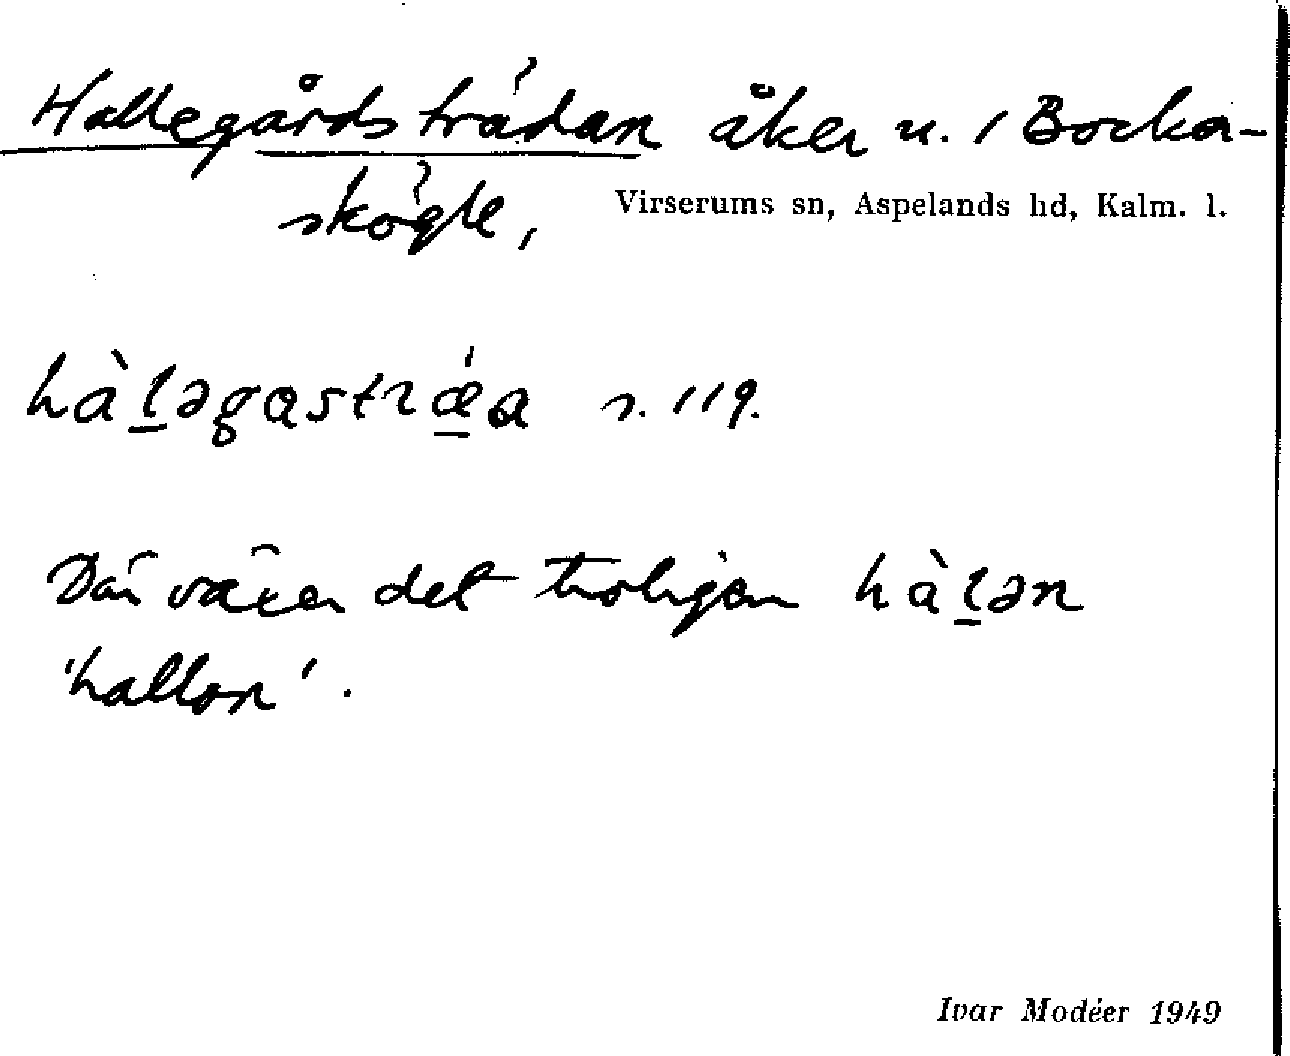 Hallegårdsträdan åker u. / Bocka-
skögle,
Virserums sn, Aspelands hd, Kalm. l.
hàl̲əgastrǽ̲a s. 119.
Där växer det troligen hàl̲ən
'hallon'.
Ivar Modéer 1949